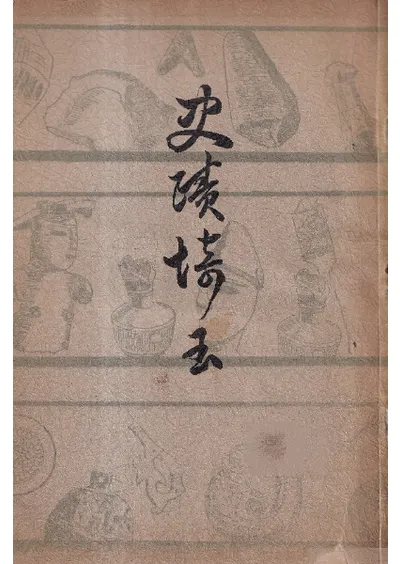 史蹟埼玉